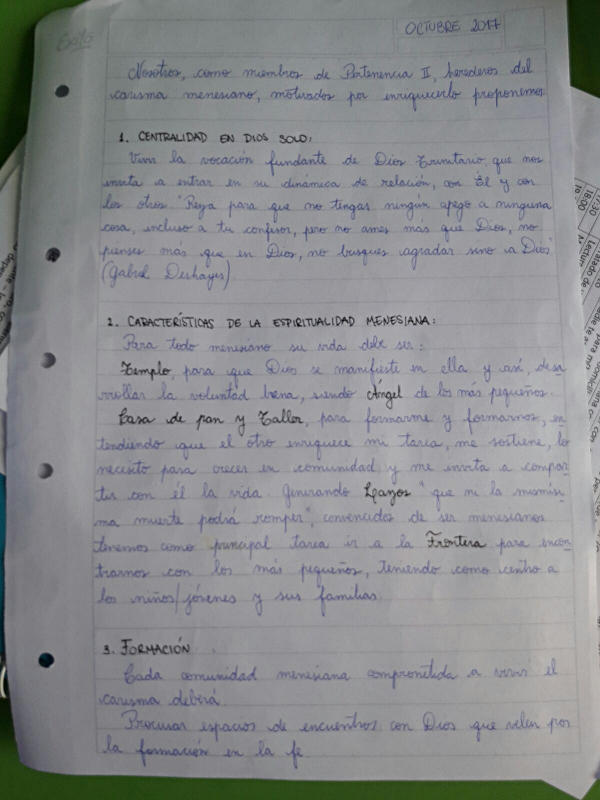 OCTUBRE 2017
Nosotros, como miembros de Pertenencia II, herederos del
carisma menesiano, motivados por enriquecerlo proponemos:
1. CENTRALIDAD EN DIOS SOLO:
Vivir la vocación fundante de Dios Trinitario, que nos
invita a entrar en su dinámica de relación, con Él y con
los otros. "Reza para que no tengas ningún apego a ninguna
cosa, incluso a tu confesor, pero no ames más que Dios, no
pienses más que en Dios, no busques agradar sino a Dios"
(Gabriel Deshayes)
2. CARACTERÍSTICAS DE LA ESPIRITUALIDAD MENESIANA:
Para todo menesiano su vida debe ser:
Templo, para que Dios se manifieste en ella y así, desa
rrollar la voluntad buena, siendo Ángel de los más pequeños.
Casa de pan y Taller, para formarme y formarnos, en
tendiendo que el otro enriquece mi tarea, me sostiene, lo
necesito para crecer en comunidad, y me invita a compar
tir con él la vida. Generando Lazos "que ni la mismísi
ma muerte podrá romper", convencidos de ser menesianos
tenemos como principal tarea ir a la Frontera para encon
trarnos con los más pequeños, teniendo como centro a
los niños/jóvenes y sus familias.
3. FORMACIÓN
Cada comunidad menesiana comprometida a vivir el
carisma deberá:
Procurar espacios de encuentros con Dios que velen por
la formación en la fe.
17:30
18:00